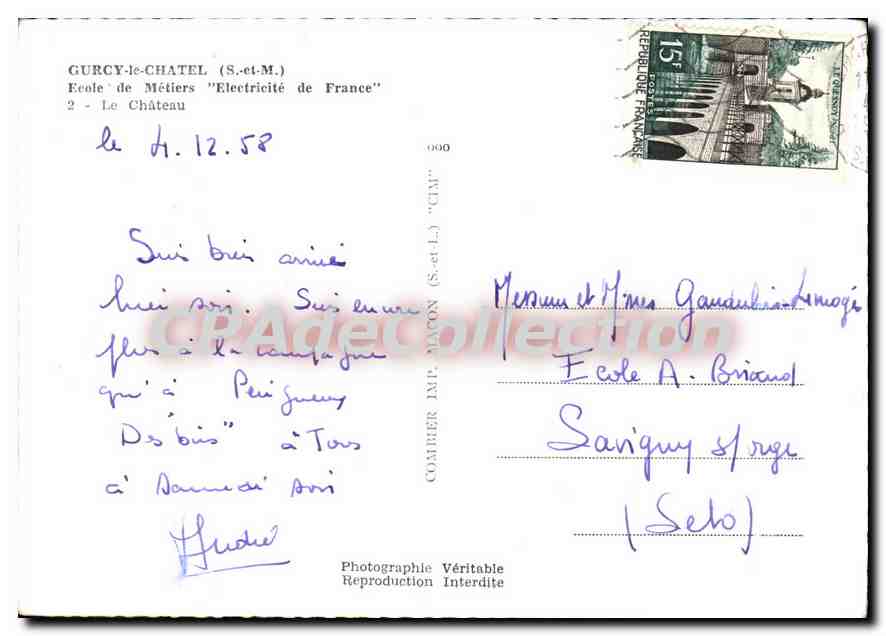 GURCY-le-CHATEL (S.-et-M.)
Ecole de Métiers "Electricité de France"
2 - Le Château
le 4.12.58
Suis bien arrivé
hier soir. Suis encore
plus à la campagne
qu'à Périgueux
Des "bis" à Tous
à samedi soir
André
000
COMBIER IMP. MACON (S.-et-L.) "CIM"
Photographie Véritable
Reproduction Interdite
15F
POSTES
REPUBLIQUE FRANÇAISE
LE QUESNOY
Messieurs et Mmes
Ecole A. Briand
Savigny s/orge
(Seto)
CPAdeCollection